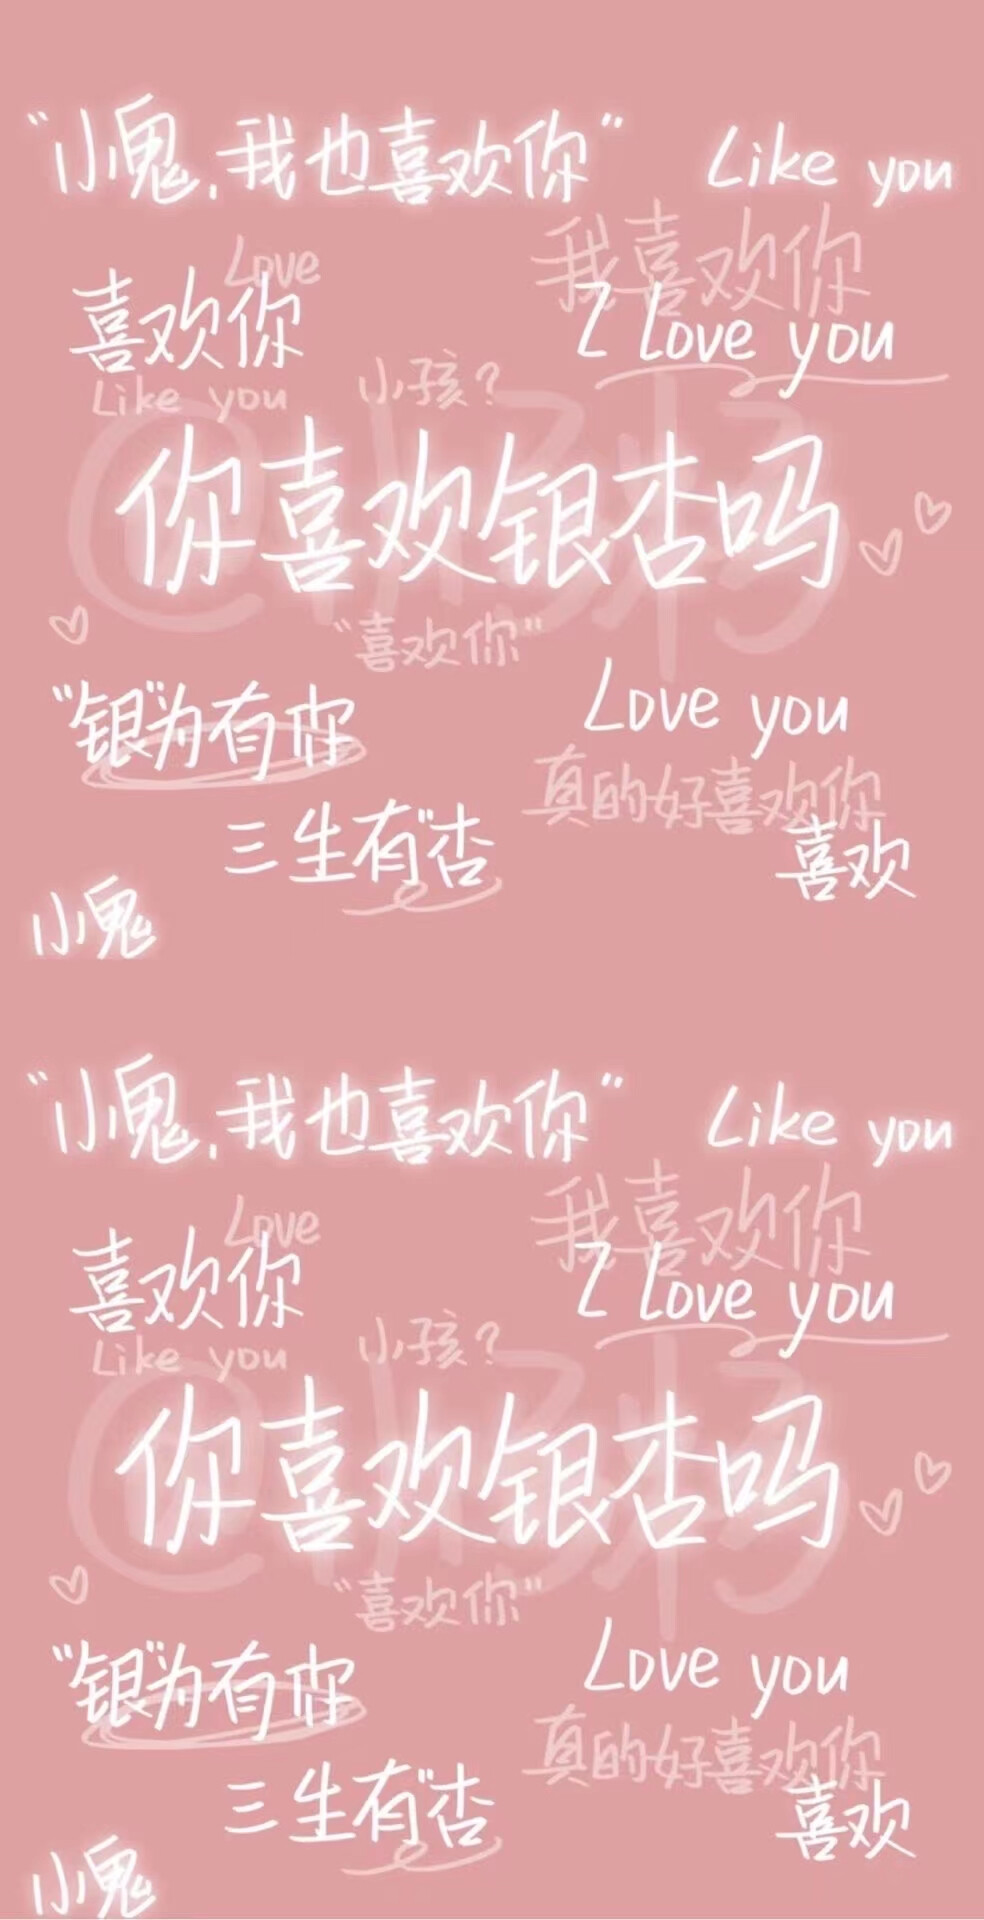 “小鬼,我也喜欢你” Like you
我喜欢你
Love
喜欢你
I Love you
Like you 小孩?
你喜欢银杏吗
“喜欢你”
“银”为有你
Love you
真的好喜欢你
三生有“杏
喜欢
小鬼
“小鬼,我也喜欢你” Like you
我喜欢你
Love
喜欢你
I Love you
Like you 小孩?
你喜欢银杏吗
“喜欢你”
“银”为有你
Love you
真的好喜欢你
三生有“杏
喜欢
小鬼